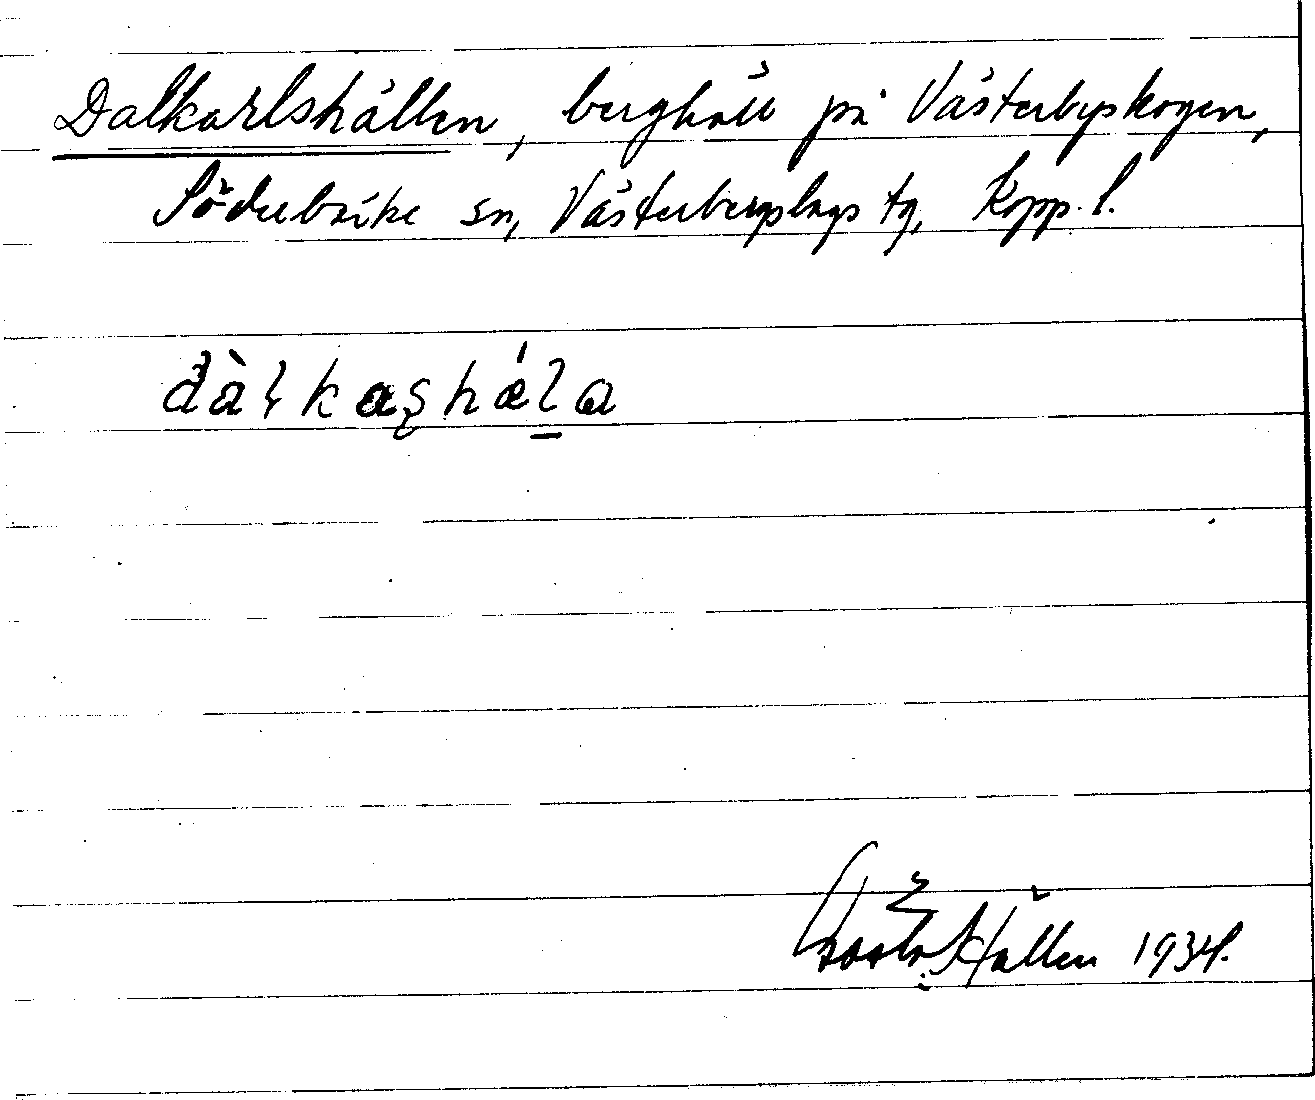 Dalkarlshällen, berghäll på Västerbyskogen,
Söderbärke sn, Västerbergslags tg, Kopp. l.
dàlkaʂhǽla
Hällen 1934.